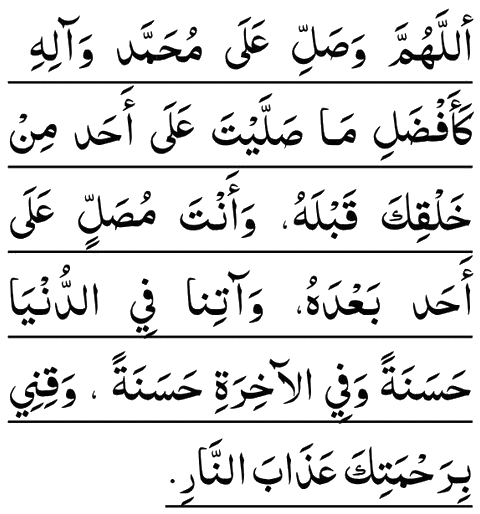 أَللَّهُمَّ وَصَلِّ عَلَى مُحَمَّد وَآلِهِ
كَأَفْضَلِ مَا صَلَّيْتَ عَلَى أَحَد مِنْ
خَلْقِكَ قَبْلَهُ، وَأَنْتَ مُصَلٍّ عَلَى
أَحَد بَعْدَهُ، وَآتِنا فِي الدُّنْيَا
حَسَنَةً وَفِي الآخِرَةِ حَسَنَةً ، وَقِنِي
بِرَحْمَتِكَ عَذَابَ النَّارِ.